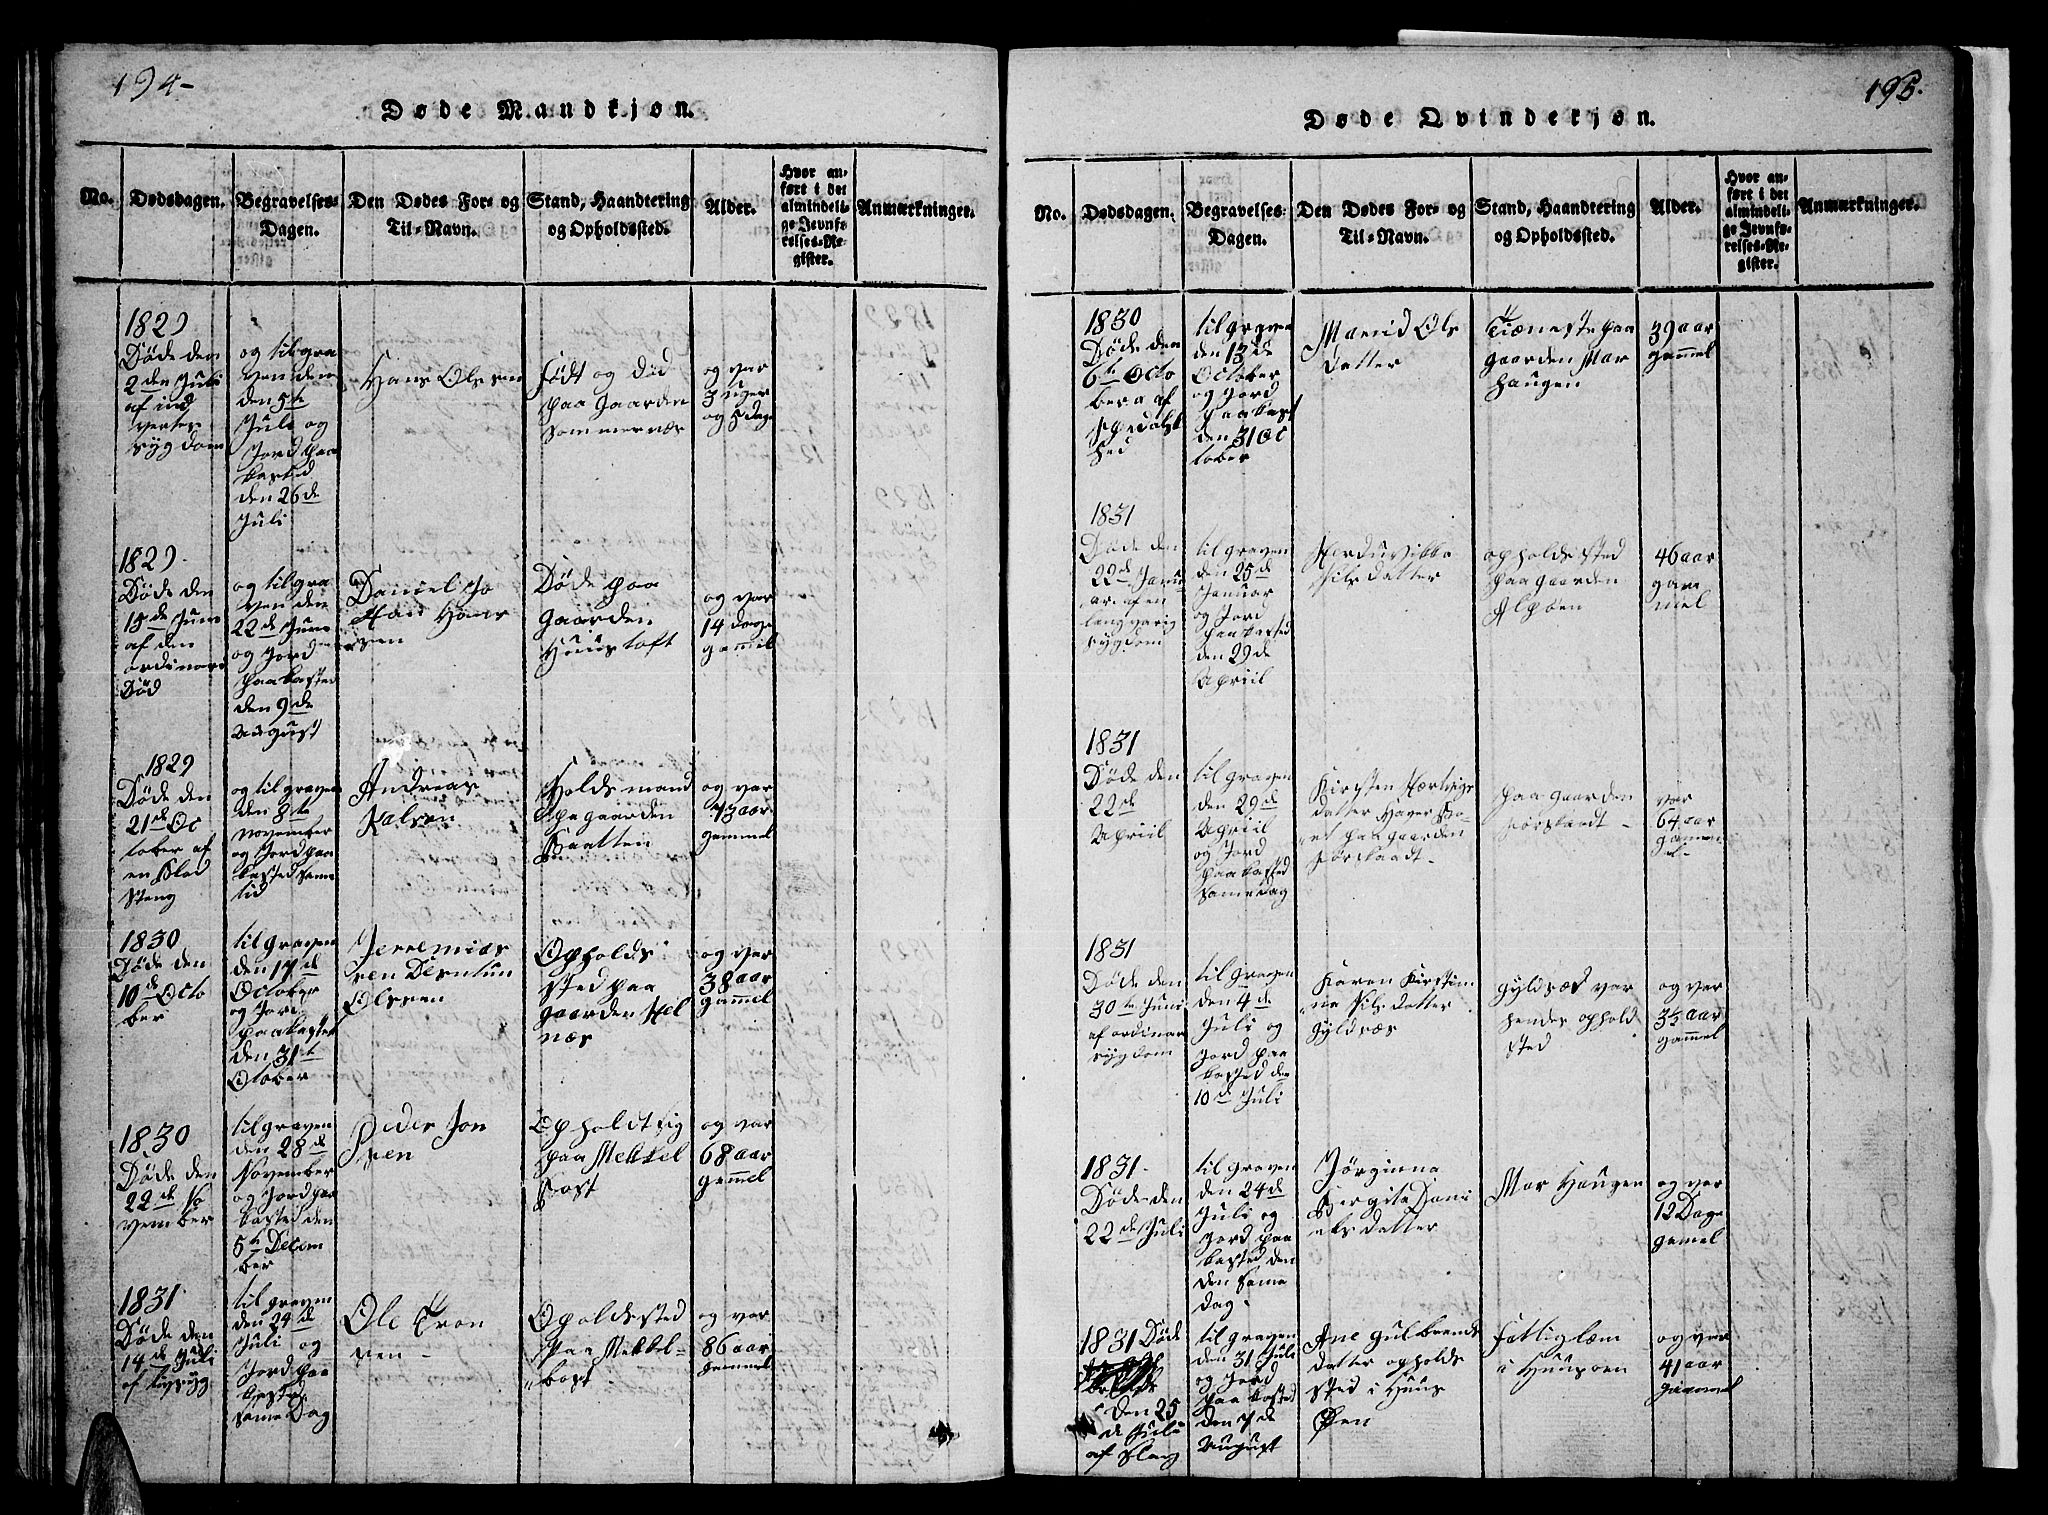 194-
Døde Mandkjøn.
No.
Dødsdagen.
Begravelses-
Dagen.
Den Dødes For- og
Til-Navn.
Stand, Haandtering
og Opholdssted.
Alder.
Hvor an-
ført i det
almindeli-
ge Jevnfø-
relses-Re-
gister.
Anmærkninger.
1829
Døde den
2den Juli
af ind
vertes
sygdom
og til gra
ven den
den 5te
Juli og
Jord paa
kasted
den 26de
Juli
Hans Olssen
født og død
paa Gaarden
Sommernæs
og var
3 uger
og 5 dage
1829.
Døde den
15de Juni
af den
ordinære
Død
og til gra
ven den
22de Juni
og Jord
paa kasted
den 9de
August
Daniel Jo
Han Hans
sen
Døde paa
Gaarden
Huustoft
og var
14 dage
gammel
1829
Døde den
21de Oc
tober af
en
Steng
og til graven
den 8te
November
og Jord paa
kasted samme
tid
Andreas
Kalsen
Holdsmand
paa gaarden
Saatten
og var
73 aar
gammel
1830
Døde den
10de Octo
ber
til graven
den 17de
October
og Jord
paa kasted
den 31te
Otober
Jerremias
Olssen
Opholds
sted paa
gaarden Hel
næs
og var
38 aar
gammel
1830
Døde den
22de No
vember
til graven
den 28de
November
og Jord paa
kasted den
5te Decem
ber
Peder Jon
sen
Opholdt sig
paa Mekkel
bost
og var
68 aar
gammel
1831
Døde den
14de Juli
af
til graven
den 24de
Juli og
Jord paa
kasted
same Dag
Ole Tron
sen -
Opoldssted
paa Mekkel-
bost.
og var
86 aar
gammel
195.
Døde Qvindekjøn.
No.
Dødsdagen.
Begravelses-
Dagen.
Den Dødes For- og
Til-Navn.
Stand, Haandtering
og Opholdssted.
Alder.
Hvor an-
ført i det
almindeli-
ge Jevnfø-
relses-Re-
gister.
Anmærkninger.
1830
Døde den
6te Octo
ber af
spedalsk
hed
til graven
den 13de
October
og Jord
paa kast
den 31 Oc
tober
Marid Ols
datter
Tieneste paa
gaarden Mar
haugen
39 aar
gammel
1831
Døde den
22de Janu
ar af en
langvarig
sygdom
til graven
den 25de
Januar
og Jord
paa kasted
den 29de
Apriil
Nilsdatter
opholdssted
paa gaarden
Alsøen
46 aar
gam
mel
1831
Døde den
22de
Apriil
til graven
den 29de
Apriil
og Jord
paa kasted
same dag
Kirsten Hartvigs
datter
paa gaarden
Førslaadt-
paa gaarden
Førslaadt -
var
64 aar
gamm
el-
1831
Døde den
30te Juni
af ordinær
sygdom
til graven
den 4de
Juli og
Jord paa
kasted den
10de Juli
Karen Kirstin
na Nilsdatter
Gyldnæs
Gyldnæs var
hendes ophold
sted
og var
3½ aar
gammel
1831.
Døde den
22de Juli
til graven
den 24de
Juli og
Jord paa
kasted den
den same
dag.
Jørginna
Bergita Dani
elsdatter
Mar Haugen
og var
12 Dage
gamel
1831 Døde
den 25
de Juli
af Slag
til graven
den 31 Juli
og Jord
paa kasted
den 7de
August
Ane Gulbrands
datter opholds
sted i Huus
Øen
Fattiglem
i Huusøen
og var
41 aar
gammel